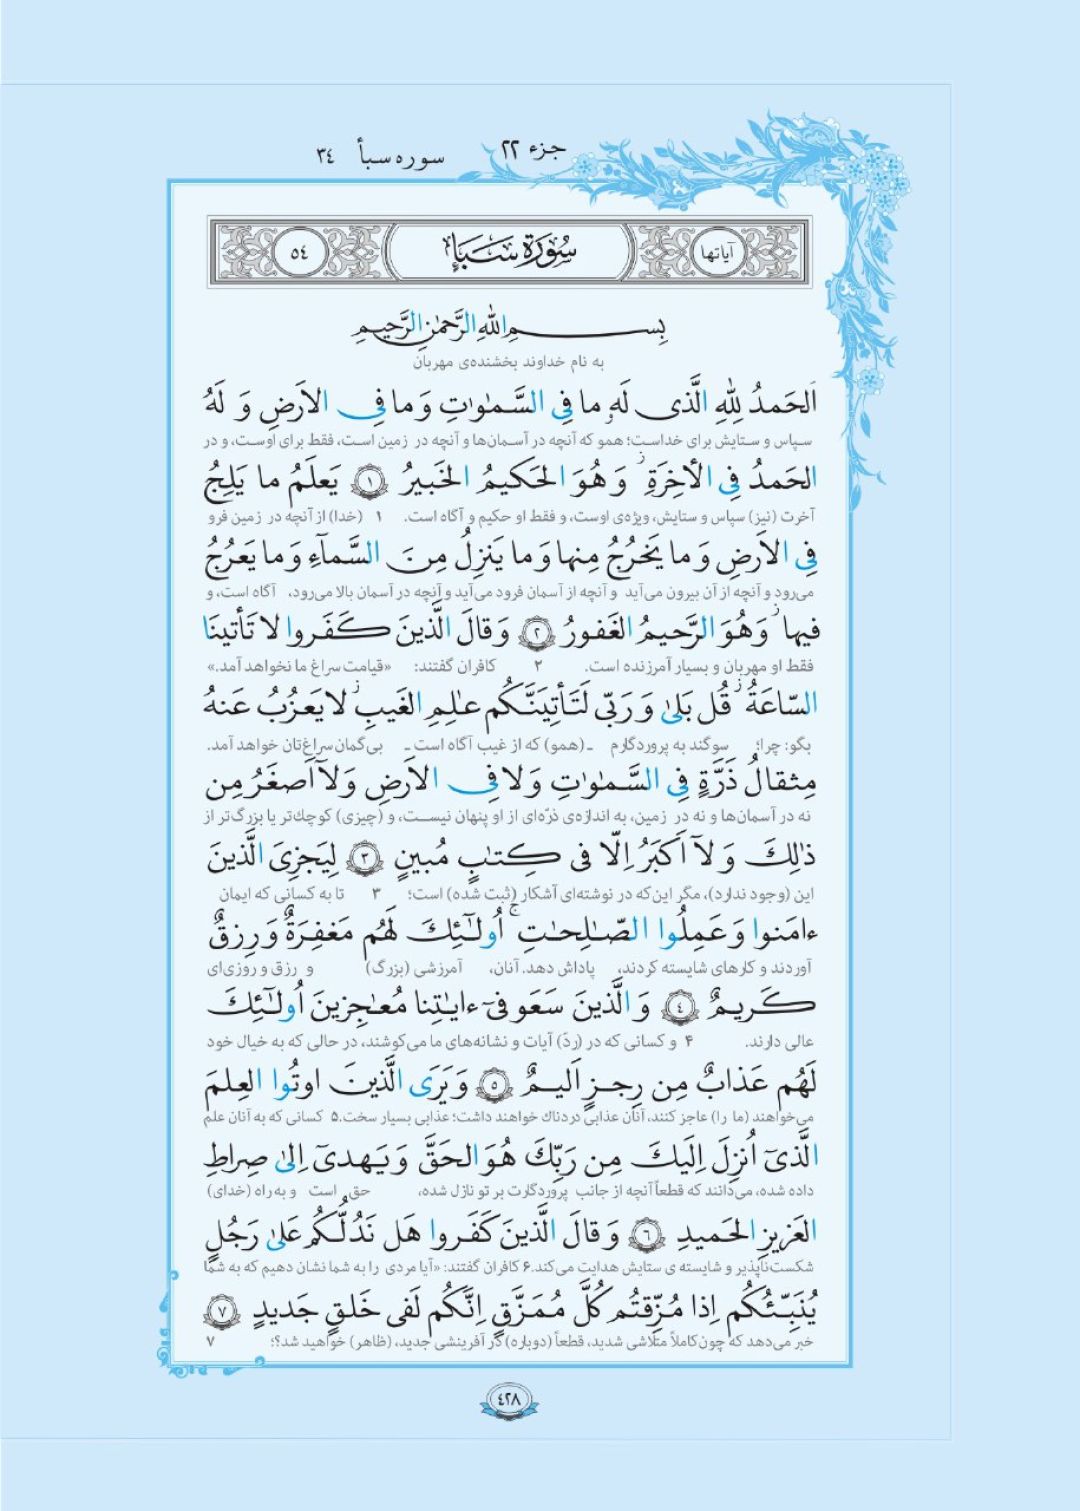 جزء ٢٢ سوره سبأ ٣٤
آیاتها سُورَةُ سَبَإٍ ٥٤
بِسمِ اللّٰهِ الرَّحمٰنِ الرَّحيمِ
به نام خداوند بخشنده‌ی مهربان
اَلحَمدُ لِلّٰهِ الَّذی لَهٗ ما فِی السَّمٰوٰتِ وَ ما فِی الاَرضِ وَ لَهُ
سپاس و ستایش برای خداست؛ همو که آنچه در آسمان‌ها و آنچه در زمین است، فقط برای اوست، و در
الحَمدُ فِی الأخِرَةِ ۚ وَ هُوَ الحَکيمُ الخَبيرُ ﴿١﴾ يَعلَمُ ما يَلِجُ
آخرت (نیز) سپاس و ستایش، ویژه‌ی اوست، و فقط او حکیم و آگاه است. ۱ (خدا) از آنچه در زمین فرو
فِی الاَرضِ وَ ما يَخرُجُ مِنها وَ ما يَنزِلُ مِنَ السَّمآءِ وَ ما يَعرُجُ
می‌رود و آنچه از آن بیرون می‌آید و آنچه از آسمان فرود می‌آید و آنچه در آسمان بالا می‌رود، آگاه است، و
فيها ۚ وَ هُوَ الرَّحيمُ الغَفورُ ﴿٢﴾ وَ قالَ الَّذينَ کَفَروا لا تَأتينَا
فقط او مهربان و بسیار آمرزنده است. ۲ کافران گفتند: «قیامت سراغ ما نخواهد آمد.»
السّاعَةُ ۖ قُل بَلیٰ وَ رَبّی لَتَأتِيَنَّکُم عٰلِمِ الغَيبِ ۖ لا يَعزُبُ عَنهُ
بگو: چرا؛ سوگند به پروردگارم ـ (همو) که از غیب آگاه است ـ بی‌گمان سراغ‌تان خواهد آمد.
مِثقالُ ذَرَّةٍ فِی السَّمٰوٰتِ وَ لا فِی الاَرضِ وَ لآ اَصغَرُ مِن
نه در آسمان‌ها و نه در زمین، به اندازه‌ی ذرّه‌ای از او پنهان نیست، و (چیزی) کوچك‌تر یا بزرگ‌تر از
ذٰلِكَ وَ لآ اَکبَرُ اِلّا فی کِتٰبٍ مُبينٍ ﴿٣﴾ لِيَجزِیَ الَّذينَ
این (وجود ندارد)، مگر این‌که در نوشته‌ای آشکار (ثبت شده) است؛ ۳ تا به کسانی که ایمان
ءامَنوا وَ عَمِلُوا الصّٰلِحٰتِ ۚ اُولٰٓئِكَ لَهُم مَغفِرَةٌ وَ رِزقٌ
آوردند و کارهای شایسته کردند، پاداش دهد. آنان، آمرزشی (بزرگ) و رزق و روزی‌ای
کَريمٌ ﴿٤﴾ وَ الَّذينَ سَعَو فیٓ ءایٰتِنا مُعٰجِزينَ اُولٰٓئِكَ
عالی دارند. ۴ و کسانی که در (ردّ) آیات و نشانه‌های ما می‌کوشند، در حالی که به خیال خود
لَهُم عَذابٌ مِن رِجزٍ اَليمٌ ﴿٥﴾ وَ يَرَی الَّذينَ اوتُوا العِلمَ
می‌خواهند (ما را) عاجز کنند، آنان عذابی دردناك خواهند داشت؛ عذابی بسیار سخت.۵ کسانی که به آنان علم
الَّذیٓ اُنزِلَ اِلَيكَ مِن رَبِّكَ هُوَ الحَقَّ وَ يَهدیٓ اِلیٰ صِراطِ
داده شده، می‌دانند که قطعاً آنچه از جانب پروردگارت بر تو نازل شده، حق است و به راه (خدای)
العَزيزِ الحَميدِ ﴿٦﴾ وَ قالَ الَّذينَ کَفَروا هَل نَدُلُّکُم عَلیٰ رَجُلٍ
شکست‌ناپذیر و شایسته ی ستایش هدایت می‌کند.۶ کافران گفتند: «آیا مردی را به شما نشان دهیم که به شما
يُنَبِّئُکُم اِذا مُزِّقتُم کُلَّ مُمَزَّقٍ اِنَّکُم لَفی خَلقٍ جَديدٍ ﴿٧﴾
خبر می‌دهد که چون کاملاً متلاشی شدید، قطعاً (دوباره) در آفرینشی جدید، (ظاهر) خواهید شد؟؛ ۷
٤٢٨